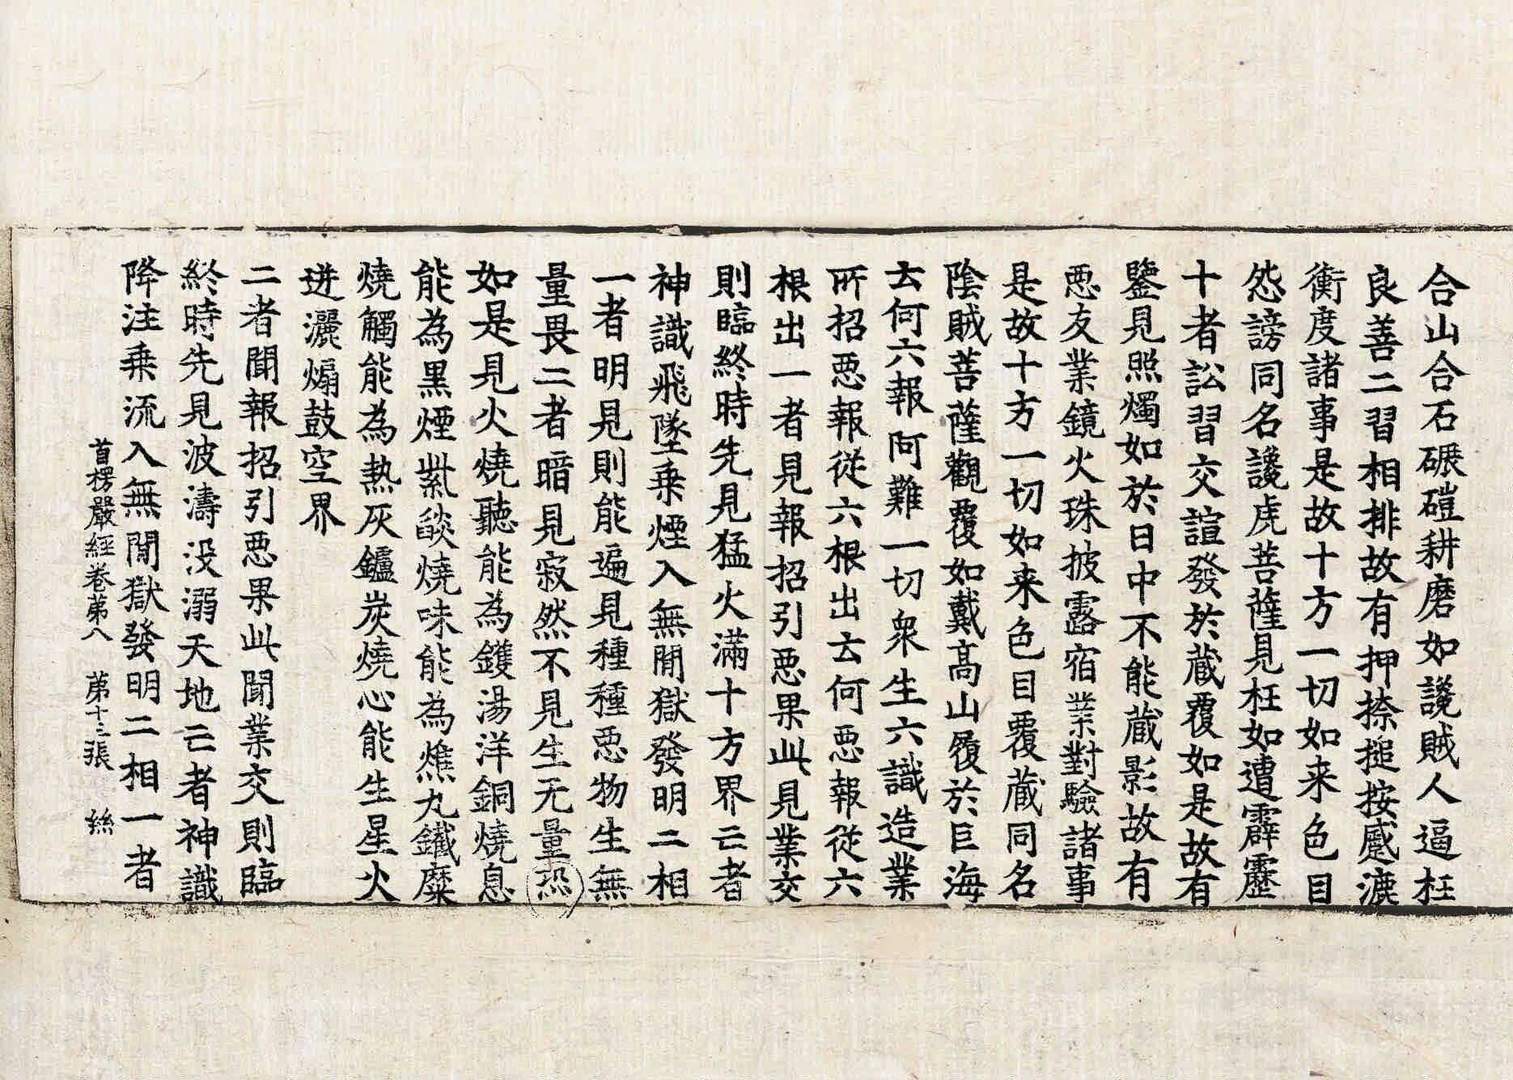 合山合石碾磑耕磨如讒賊人逼枉
良善二習相排故有押捺搥按蹙漉
衡度諸事是故十方一切如来色目
怨謗同名讒虎菩薩見枉如遭霹靂
十者訟習交諠發於藏覆如是故有
鑒見照燭如於日中不能藏影故有
悪友業鏡火珠披露宿業對驗諸事
是故十方一切如来色目覆藏同名
陰賊菩薩觀覆如戴高山履於巨海
云何六報阿難一切衆生六識造業
所招悪報従六根出云何悪報従六
根出一者見報招引悪果此見業交
則臨終時先見猛火滿十方界亡者
神識飛墜乗煙入無間獄發明二相
一者明見則能遍見種種悪物生無
量畏二者暗見寂然不見生无量恐
如是見火燒聽能為鑊湯洋銅燒息
能為黒煙紫燄燒味能為燋丸鐵糜
燒觸能為熱灰鑪炭燒心能生星火
迸灑煽鼓空界
二者聞報招引悪果此聞業交則臨
終時先見波濤没溺天地亡者神識
降注乗流入無間獄發明二相一者
首楞嚴經卷第八 第十三張 絲